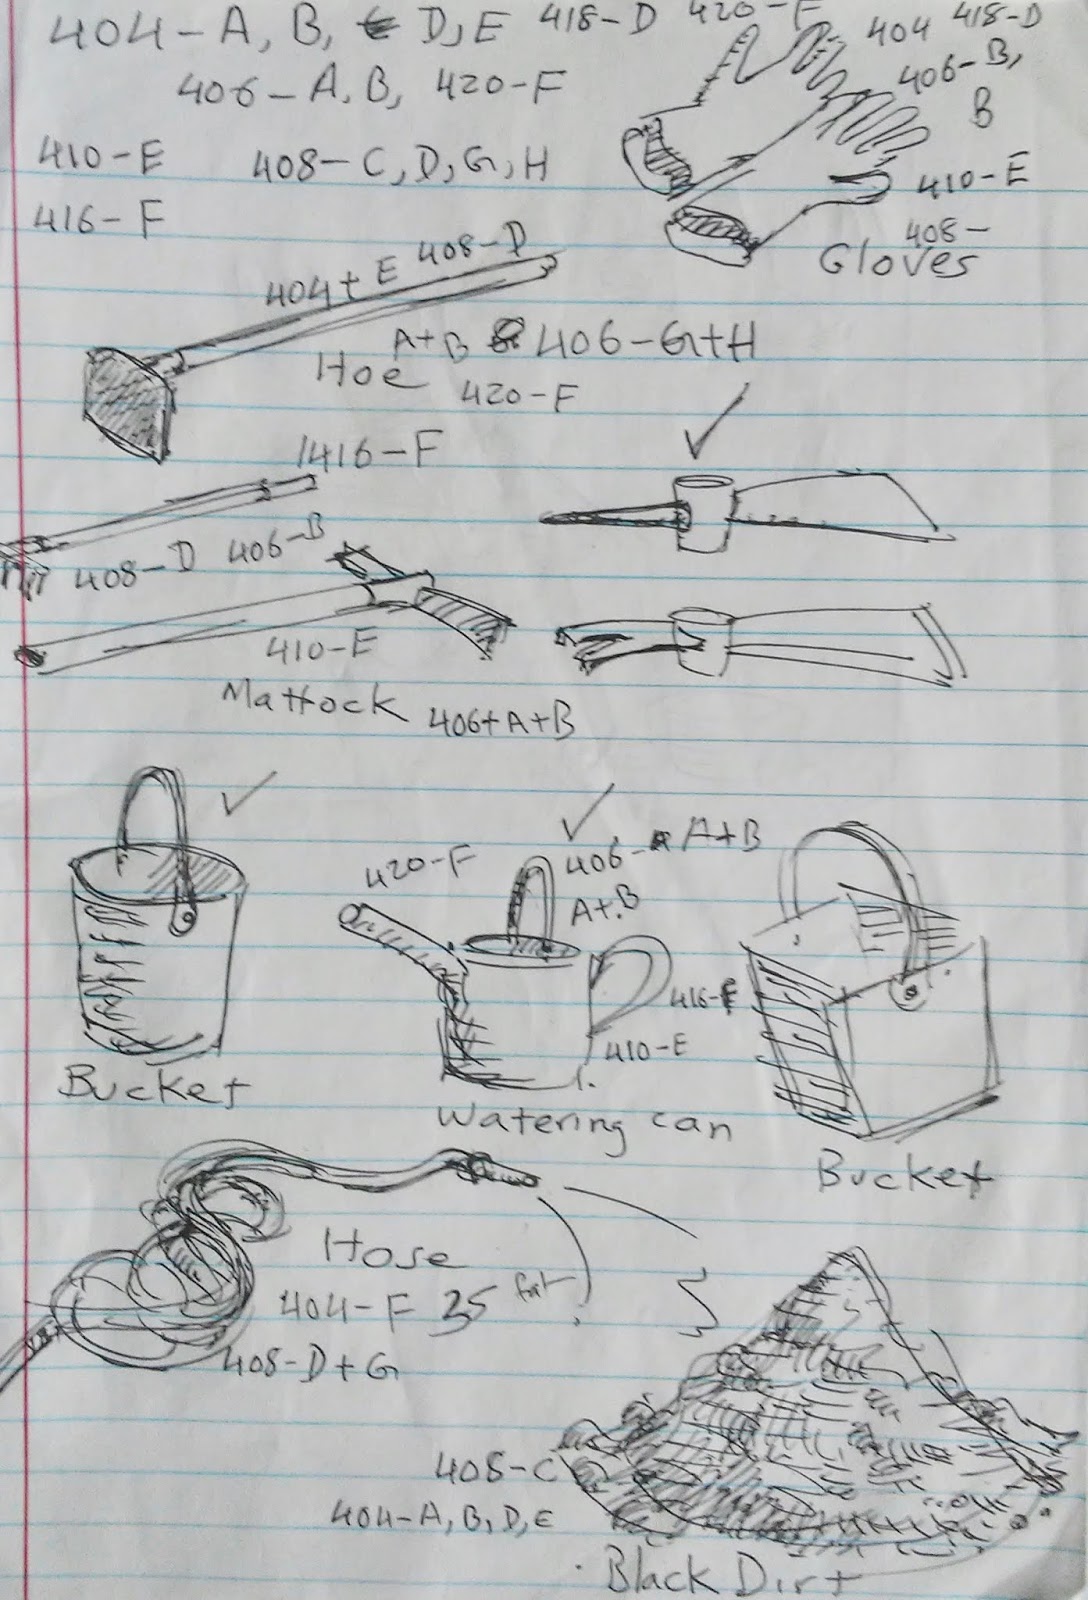 404-A, B, D, E 418-D 420-F
404 418-D
406-A, B, 420-F
406-B,
B
410-E 408-C, D, G, H
410-E
416-F
408-
Gloves
404+E 408-D
A+B 406-G+H
Hoe 420-F
1416-F
408-D 406-B
410-E
Mattock 406+A+B
420-F 406- A+B
A+.B
416-F
410-E
Bucket
Watering can
Bucket
Hose
404-F 35
408-D+G
408-C
404-A, B, D, E
Black Dirt